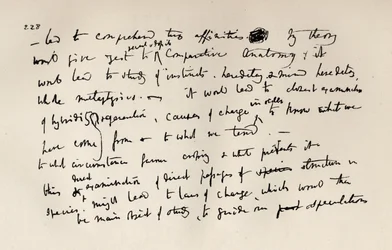 228
— led to comprehend true affinities. My theory
would give zest to recent & fossil Comparative Anatomy, & it
would lead to study of instincts, heredity, & mind heredity,
whole metaphysics. — it would lead to closest examination
of hybridity & generation, causes of change in order to know what we
have come from & to what we tend. —
to what circumstances favour crossing & what prevents it —
this & direct examination of direct passages of species structure in
species, might lead to laws of change, which would then
be main object of study, to guide our past speculations